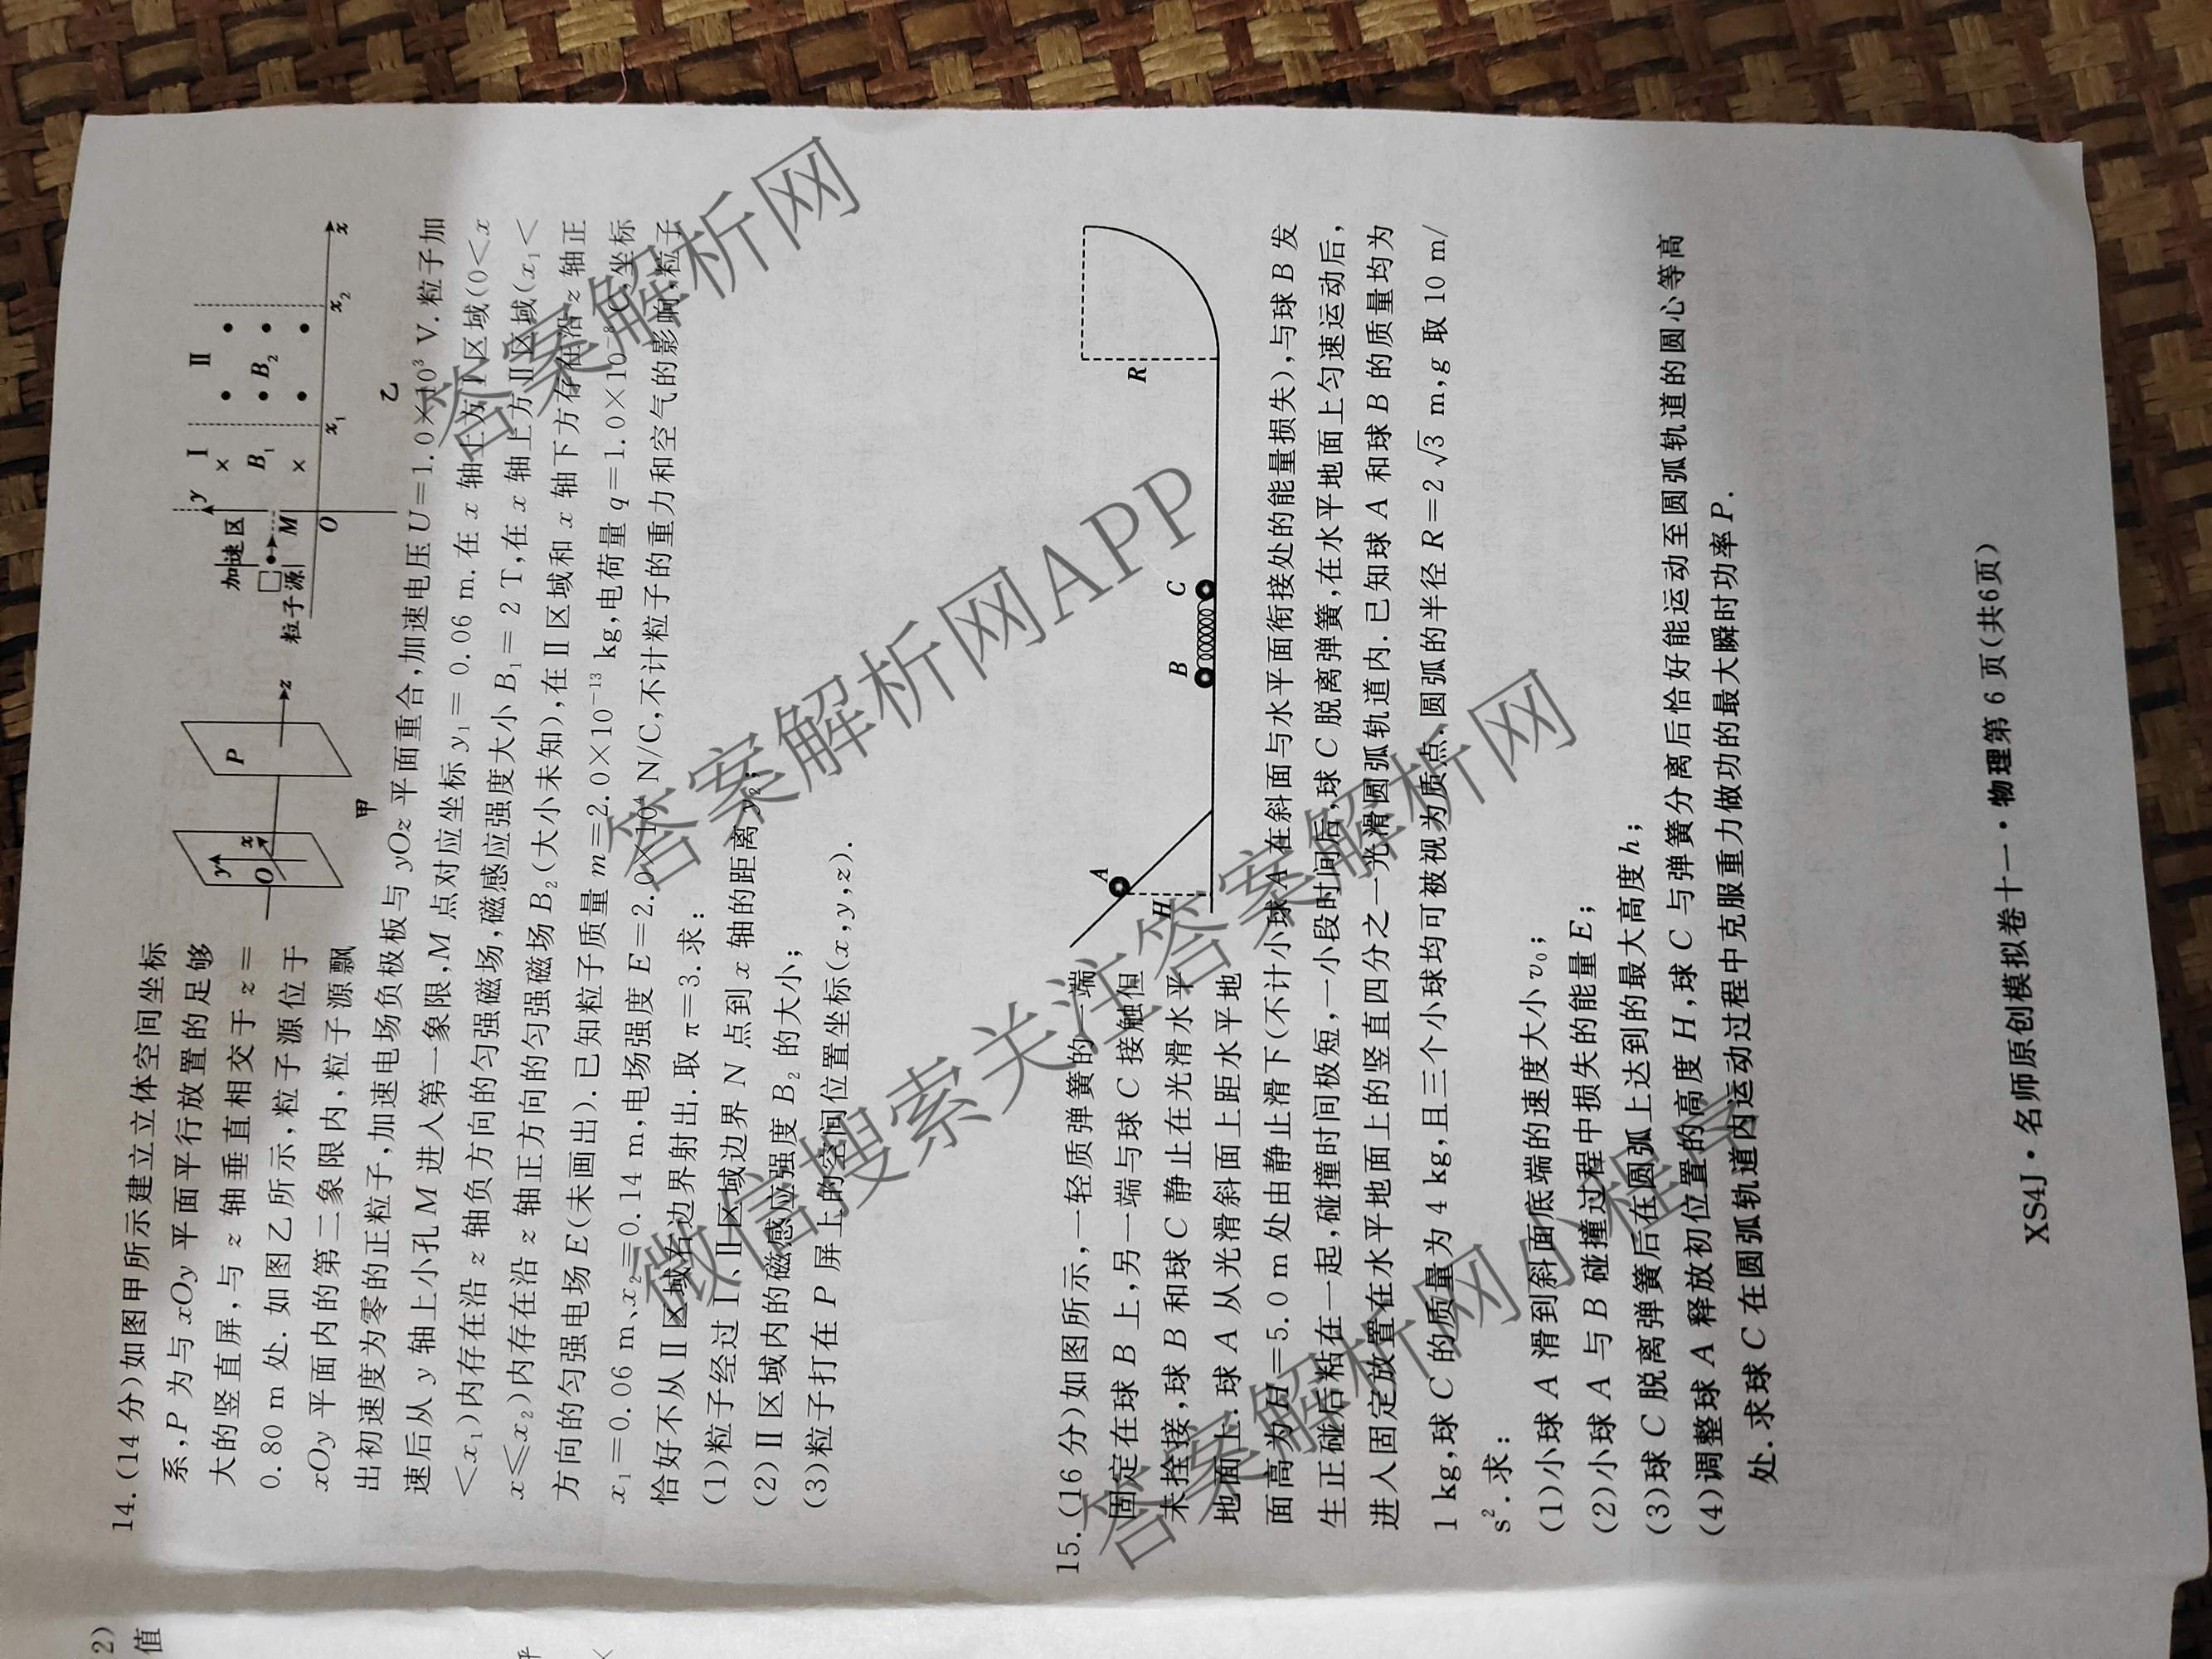 2)
值
14.(14 分)如图甲所示建立立体空间坐标
系,P 为与 xOy 平面平行放置的足够
大的竖直屏,与 z 轴垂直相交于 z=
0.80 m 处.如图乙所示,粒子源位于
xOy 平面内的第二象限内,粒子源飘
出初速度为零的正粒子,加速电场负极板与 yOz 平面重合,加速电压 U=1.0×10³ V.粒子加
速后从 y 轴上小孔 M 进入第一象限,M 点对应坐标 y₁=0.06 m.在 x 轴上方Ⅰ区域(0<x
<x₁)内存在沿 z 轴负方向的匀强磁场,磁感应强度大小 B₁=2 T,在 x 轴上方Ⅱ区域(x₁<
x≤x₂)内存在沿 z 轴正方向的匀强磁场 B₂(大小未知),在Ⅱ区域和 x 轴下方存在沿 z 轴正
方向的匀强电场 E(未画出).已知粒子质量 m=2.0×10⁻¹³ kg,电荷量 q=1.0×10⁻⁸ C,坐标
x₁=0.06 m、x₂=0.14 m,电场强度 E=2.0×10⁴ N/C,不计粒子的重力和空气的影响,粒子
恰好不从Ⅱ区域右边界射出.取 π=3.求:
(1)粒子经过Ⅰ、Ⅱ区域边界 N 点到 x 轴的距离 y₂;
(2)Ⅱ区域内的磁感应强度 B₂ 的大小;
(3)粒子打在 P 屏上的空间位置坐标(x,y,z).
y
O
x
P
z
甲
加速区
粒子源
y
M
O
Ⅰ
×
B₁
×
x₁
Ⅱ
B₂
x₂
x
乙
15.(16 分)如图所示,一轻质弹簧的一端
固定在球 B 上,另一端与球 C 接触但
未拴接,球 B 和球 C 静止在光滑水平
地面上.球 A 从光滑斜面上距水平地
面高为 H=5.0 m 处由静止滑下(不计小球 A 在斜面与水平面衔接处的能量损失),与球 B 发
生正碰后粘在一起,碰撞时间极短,一小段时间后,球 C 脱离弹簧,在水平地面上匀速运动后,
进入固定放置在水平地面上的竖直四分之一光滑圆弧轨道内.已知球 A 和球 B 的质量均为
1 kg,球 C 的质量为 4 kg,且三个小球均可被视为质点,圆弧的半径 R=2√3 m,g 取 10 m/
s².求:
(1)小球 A 滑到斜面底端的速度大小 v₀;
(2)小球 A 与 B 碰撞过程中损失的能量 E;
(3)球 C 脱离弹簧后在圆弧上达到的最大高度 h;
(4)调整球 A 释放初位置的高度 H,球 C 与弹簧分离后恰好能运动至圆弧轨道的圆心等高
处.求球 C 在圆弧轨道内运动过程中克服重力做功的最大瞬时功率 P.
A
H
B
C
R
XS4J·名师原创模拟卷十一·物理第 6 页(共6页)
答案解析网
答案解析网APP
微信搜索关注答案解析网
答案解析网小程序